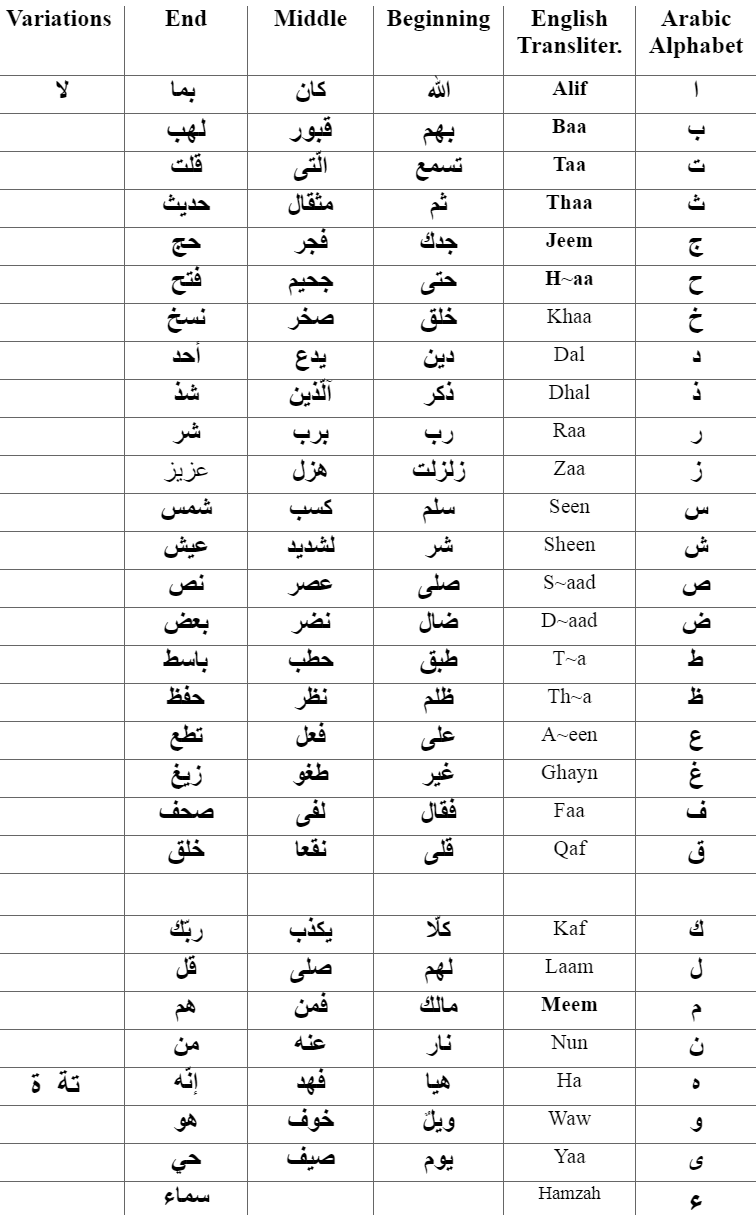 Variations End Middle Beginning English Arabic
Transliter. Alphabet
لا بما كان الله Alif ا
لهب قبور بهم Baa ب
قلت الّتى تسمع Taa ت
حديث مثقال ثم Thaa ث
حج فجر جدك Jeem ج
فتح جحيم حتى H~aa ح
نسخ صخر خلق Khaa خ
أحد يدع دين Dal د
شذ آلّذين ذكر Dhal ذ
شر برب رب Raa ر
عزيز هزل زلزلت Zaa ز
شمس كسب سلم Seen س
عيش لشديد شر Sheen ش
نص عصر صلى S~aad ص
بعض نضر ضال D~aad ض
باسط حطب طبق T~a ط
حفظ نظر ظلم Th~a ظ
تطع فعل على A~een ع
زيغ طغو غير Ghayn غ
صحف لفى فقال Faa ف
خلق نقعا قلى Qaf ق
ربّك يكذب كلّا Kaf ك
قل صلى لهم Laam ل
هم فمن مالك Meem م
من عنه نار Nun ن
تة ة إنّه فهد هيا Ha ه
هو خوف ويلٌ Waw و
حي صيف يوم Yaa ى
سماء Hamzah ء